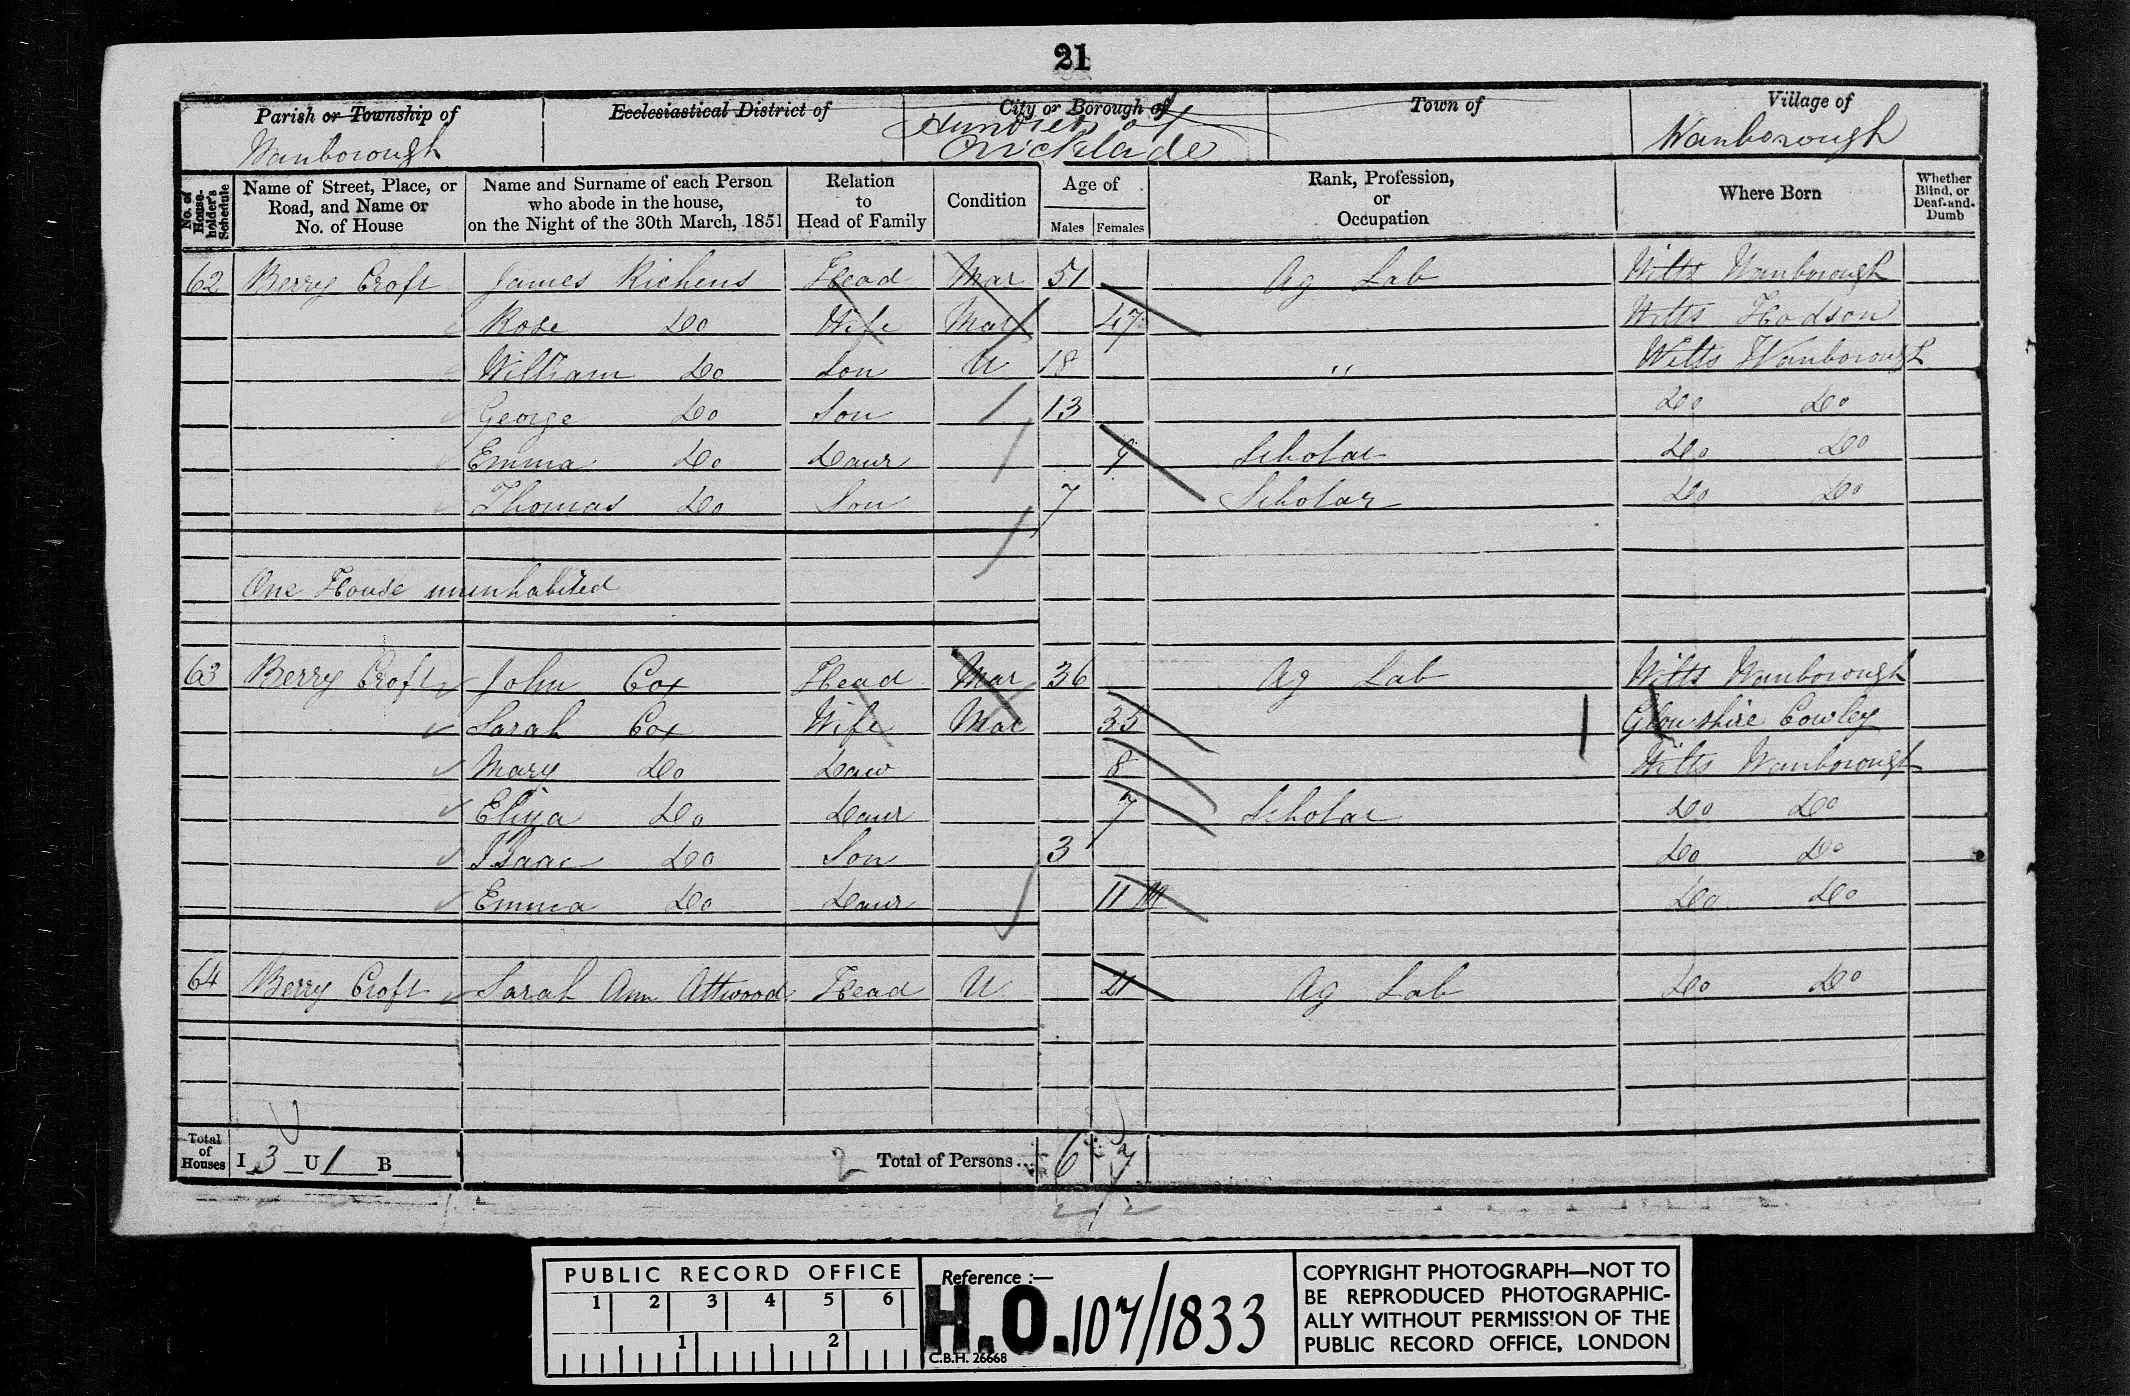 21
Parish or Township of Ecclesiastical District of City or Borough of Town of Village of
Wanborough Hundred of Cricklade Wanborough
No. of Householder's Schedule Name of Street, Place, or Road, and Name or No. of House Name and Surname of each Person who abode in the house, on the Night of the 30th March, 1851 Relation to Head of Family Condition Age of Males Females Rank, Profession, or Occupation Where Born Whether Blind, or Deaf-and-Dumb
62 Berry Croft James Richens Head Mar 51 Ag Lab Wilts Wanborough
Rose Do Wife Mar 47 Wilts Hodson
William Do Son U 18 " Wilts Wanborough
George Do Son 13 Do Do
Emma Do Daur 9 Scholar Do Do
Thomas Do Son 7 Scholar Do Do
One House uninhabited
63 Berry Croft John Cox Head Mar 36 Ag Lab Wilts Wanborough
Sarah Cox Wife Mar 35 Cowley
Mary Do Daur 8 Wilts Wanborough
Eliza Do Daur 7 Scholar Do Do
Isaac Do Son 3 Do Do
Emma Do Daur 11 M Do Do
64 Berry Croft Sarah Ann Attwood Head U 21 Ag Lab Do Do
Total of Houses I 3 U 1 B 2 Total of Persons... 6 7
PUBLIC RECORD OFFICE
1 2 3 4 5 6
1 2
Reference :—
H.O. 107/1833
C.B.H. 26668
COPYRIGHT PHOTOGRAPH—NOT TO
BE REPRODUCED PHOTOGRAPHIC-
ALLY WITHOUT PERMISSION OF THE
PUBLIC RECORD OFFICE, LONDON